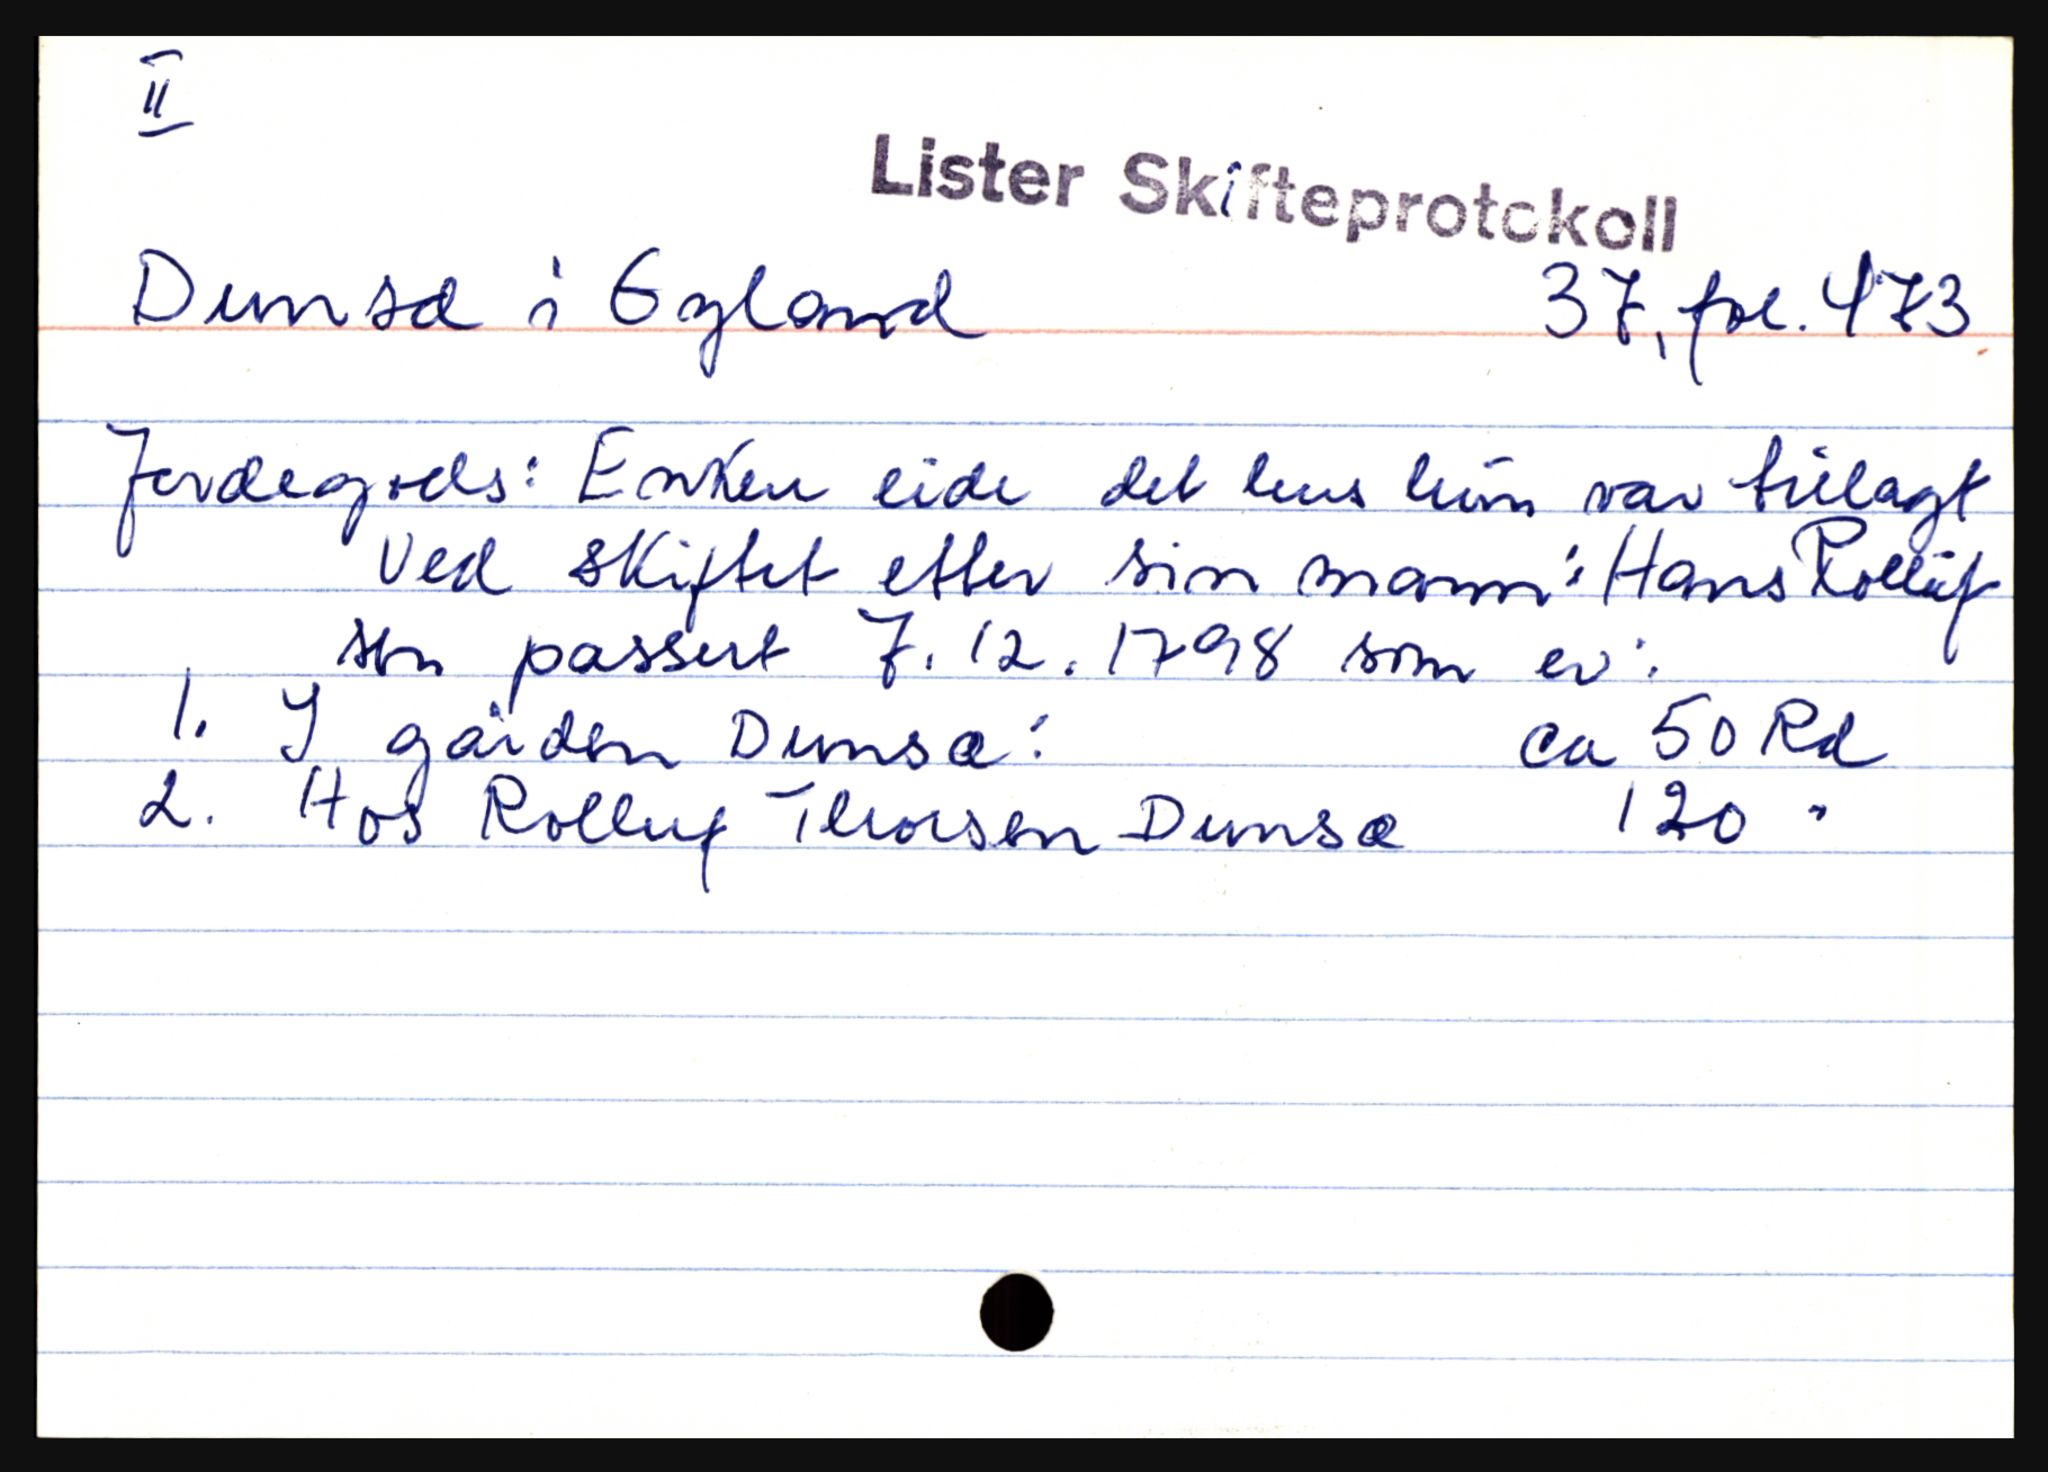 II
Lister Skifteprotokoll
Dunsæ i Gyland 37, fol. 473
Jordegods: Enken eide det hus hun var tillagt
ved skiftet etter sin mann: Hans Rolluf
sen passert 7.12.1798 som er:
1. I gården Dunsæ: ca 50 Rd
2. Hos Rolluf Thorsen Dunsæ 120 "